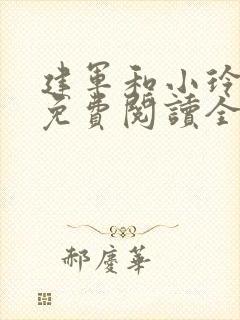 建軍和小玲
免費閱讀全
郝慶華